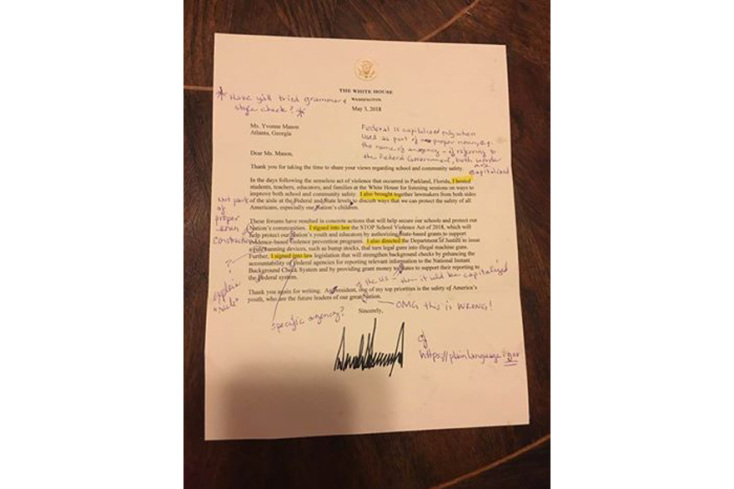 THE WHITE HOUSE
WASHINGTON
May 3, 2018
* Have y'all tried grammar &
style check? *
Ms. Yvonne Mason
Atlanta, Georgia
Federal is capitalized only when
used as part of proper noun, e.g.
the name of an agency - if referring to
the Federal Government, both words are
capitalized
Dear Ms. Mason,
Thank you for taking the time to share your views regarding school and community safety.
In the days following the senseless act of violence that occurred in Parkland, Florida, I hosted
students, teachers, educators, and families at the White House for listening sessions on ways to
improve both school and community safety. I also brought together lawmakers from both sides
of the aisle at the Federal and State levels to discuss ways that we can protect the safety of all
Americans, especially our Nation's children.
not part
of
proper
noun
construction
These forums have resulted in concrete actions that will help secure our schools and protect our
Nation's communities. I signed into law the STOP School Violence Act of 2018, which will
help protect our Nation's youth and educators by authorizing State-based grants to support
evidence-based violence prevention programs. I also directed the Department of Justice to issue
a rule banning devices, such as bump stocks, that turn legal guns into illegal machine guns.
Further, I signed into law legislation that will strengthen background checks by enhancing the
accountability of Federal agencies for reporting relevant information to the National Instant
Background Check System and by providing grant money to States to support their reporting to
the Federal system.
?
explain
"rule"
of the US - then it would be capitalized
Thank you again for writing. As President, one of my top priorities is the safety of America's
youth, who are the future leaders of our great Nation.
OMG this is WRONG!
specific agency?
Sincerely,
cf
https://plainlanguage.gov